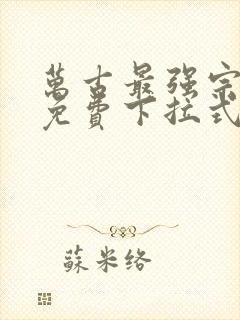 萬古最强宗
免費下拉式
蘇米络